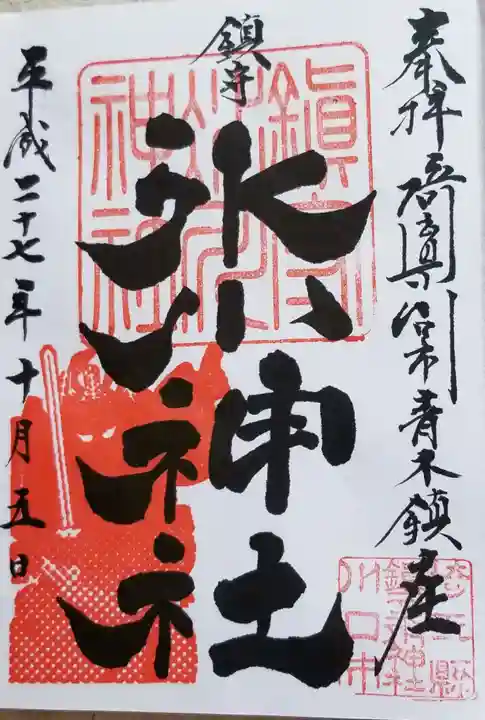 奉拝 埼玉県川口市青木鎮座
鎮守
氷川神社
平成二十七年十月五日
鎮守
氷川
神社
埼玉縣
鎮守氷川神社
川口市